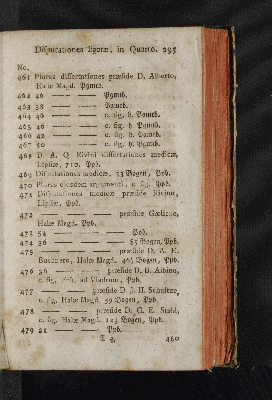 Disputationes ligatæ, in Quarto. 295
No.
461 Plures dissertationes præside D. Alberto,
Halæ Magd. Pgmtb.
462 46 — — — Pgmtb.
463 38 — — — Pgmtb.
464 46 — — — c. fig. h. Pgmtb.
465 46 — — — c. fig. h. Pgmtb.
466 42 — — — c. fig. h. Pgmtb.
467 50 — — — c. fig. h. Pgmtb.
468 D. A. Q. Rivini dissertationes medicæ,
Lipsiæ, 710. Ppb.
469 Disputationes medicæ. 33 Bogen, Ppb.
470 Plures ejusdem argumenti, c. fig. Ppb.
471 Disputationes medicæ præside Rivino,
Lipsiæ, Ppb.
472 — — — præside
Halæ Magd. Ppb.
473 54 — — — Ppb.
474 36 — — — 85 Bogen, Ppb.
475 — — — præside D. A. E.
Buchnero, Halæ Magd. Bogen, Ppb.
476 36 — — præside D. B. Albino,
c. fig. ad Viadrum, Ppb.
477 — — — præside D. J. H. Schultze,
c. fig. Halæ Magd. 59 Bogen, Ppb.
478 — — — præside D. G. E. Stahl,
c. fig. Halæ Magd. 123 Bogen, Ppb.
479 22 — — — Ppb.
T 4 480